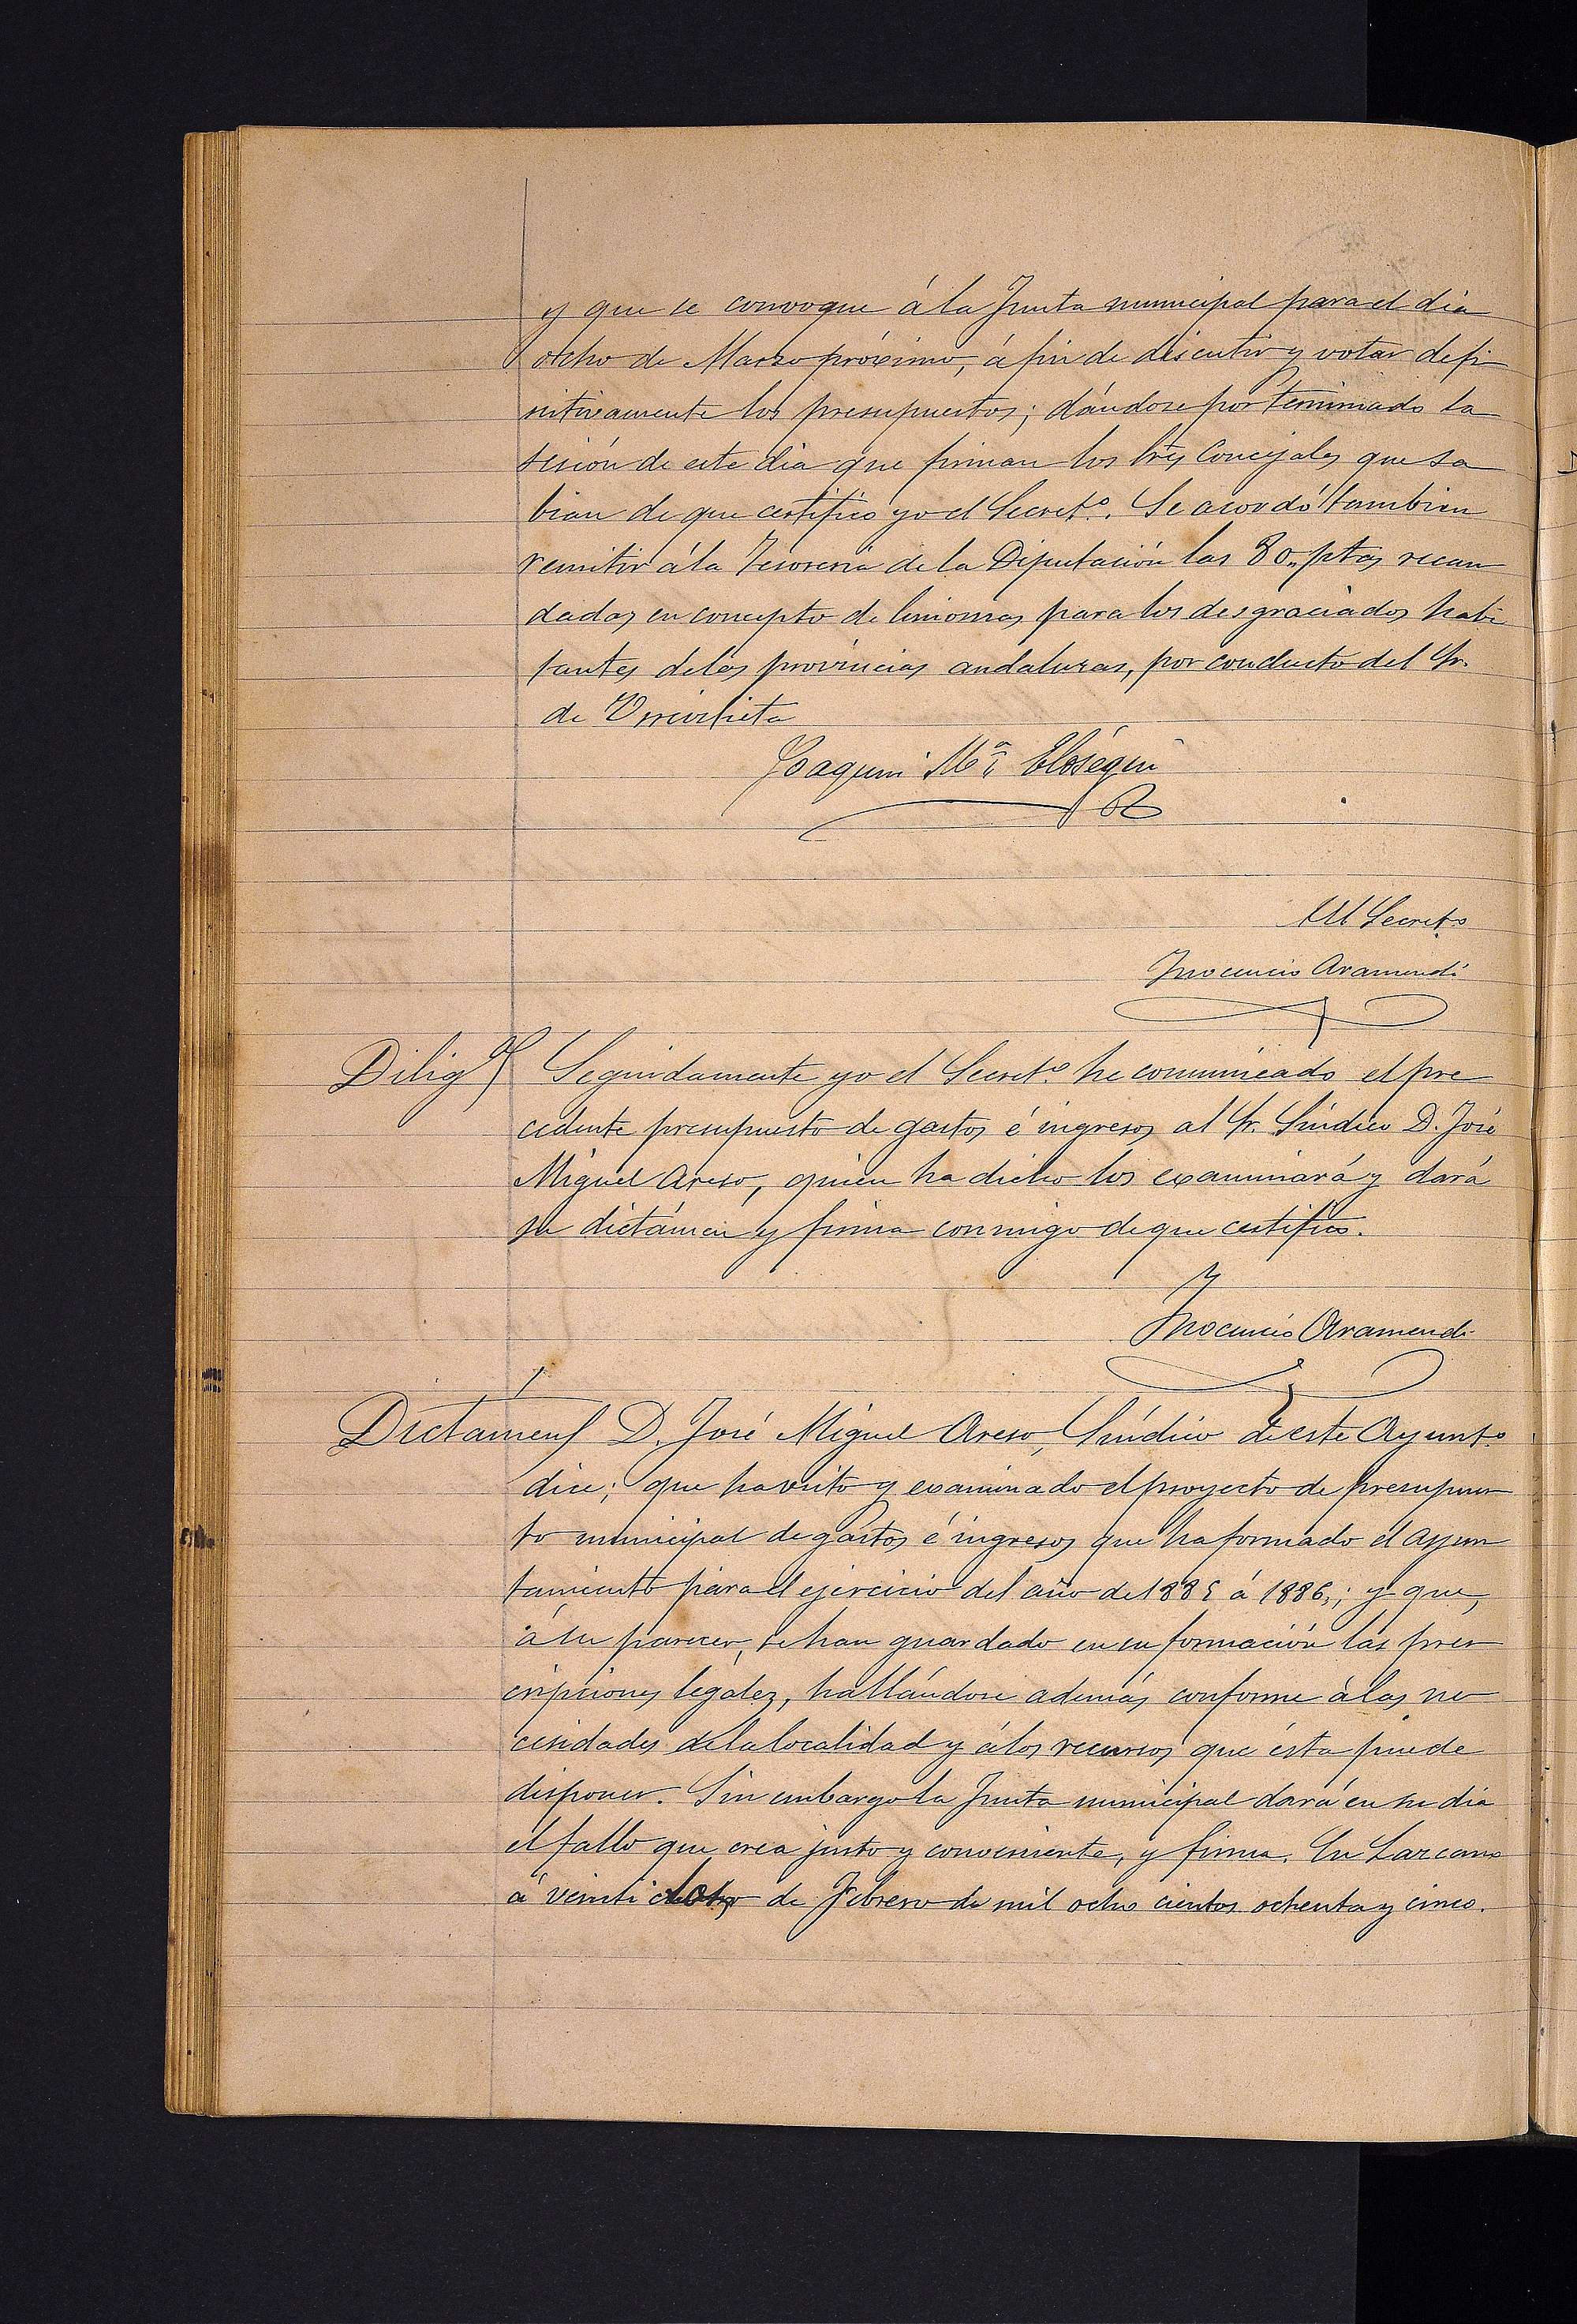 y que se convoque á la Junta municipal para el dia
ocho de Marzo próximo, á fin de discutir y votar defi
nitivamente los presupuestos; dándose por terminado la
sesión de este dia que firman los Sres Concejales que sa
bian de que certifico yo el Secret.º. Se acordó tambien
remitir á la Tesoreria de la Diputación las 80,, ptas recau
dadas en concepto de limosnas para los desgraciados habi
tantes de las provincias andaluzas, por conducto del Sr.
de Urreiztieta
Joaquin M.ª Eloségui
El Secret.º
Inocencio Aramendi
Dilig.ª Seguidamente yo el Secret.º he comunicado el pre
cedente presupuesto de gastos é ingresos al Sr. Síndico D. José
Miguel Areso, quien ha dicho los examinará y dará
su dictámen y firma conmigo de que certifico.
Inocencio Aramendi
Dictamen D. José Miguel Areso, Síndico de este Ayunt.º
dice; que ha visto y examinado el proyecto de presupues
to municipal de gastos é ingresos que ha formado el ayun
tamiento para el ejercicio del año de 1885 á 1886,; y que,
á su parecer, se han guardado en su formación las pres
cripciones legales, hallándose además conforme á las ne
cesidades de la localidad y á los recursos que ésta puede
disponer. Sin embargo la Junta municipal dará en su dia
el fallo que crea justo y conveniente, y firma. En Lazcano
á veinti ocho de Febrero de mil ocho cientos ochenta y cinco.